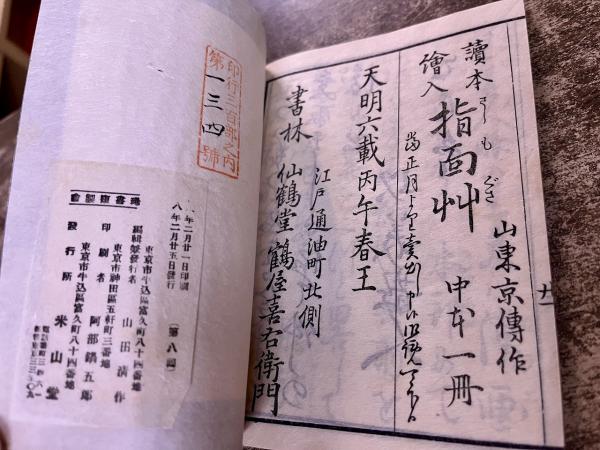 讀本
繪入
指面艸
さしもぐさ
山東京傳作
中本一冊
天明六載丙午春王
江戸通油町北側
書林 仙鶴堂 鶴屋喜右衛門
十一
印行三百部之内
第一三四號
稀書複製會
年二月廿一日印刷
八年二月廿五日發行
(第八回)
東京市牛込區富久町八十四番地
編輯兼發行者 山田清作
東京市神田區五軒町三番地
印刷者 阿部鑄五郎
東京市牛込區富久町八十四番地
發行所 米山堂